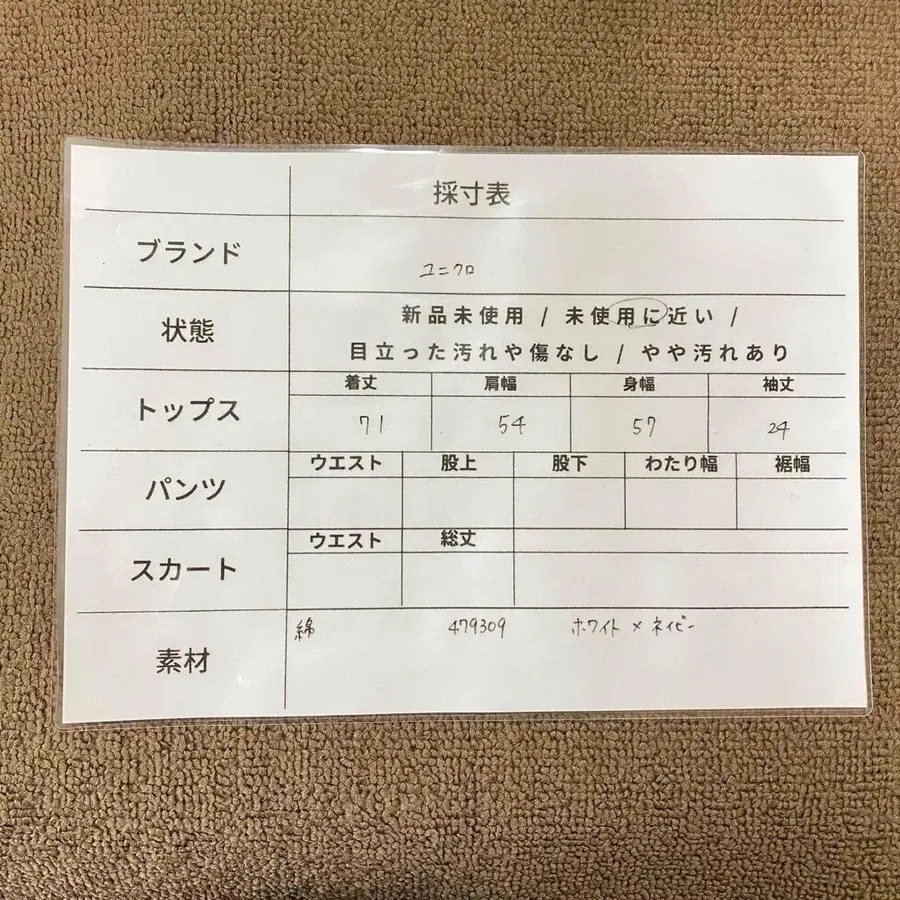 採寸表
ブランド
ユニクロ
状態
新品未使用 / 未使用に近い /
目立った汚れや傷なし / やや汚れあり
トップス
着丈 肩幅 身幅 袖丈
71 54 57 24
パンツ
ウエスト 股上 股下 わたり幅 裾幅
スカート
ウエスト 総丈
素材
綿 479309 ホワイト × ネイビー